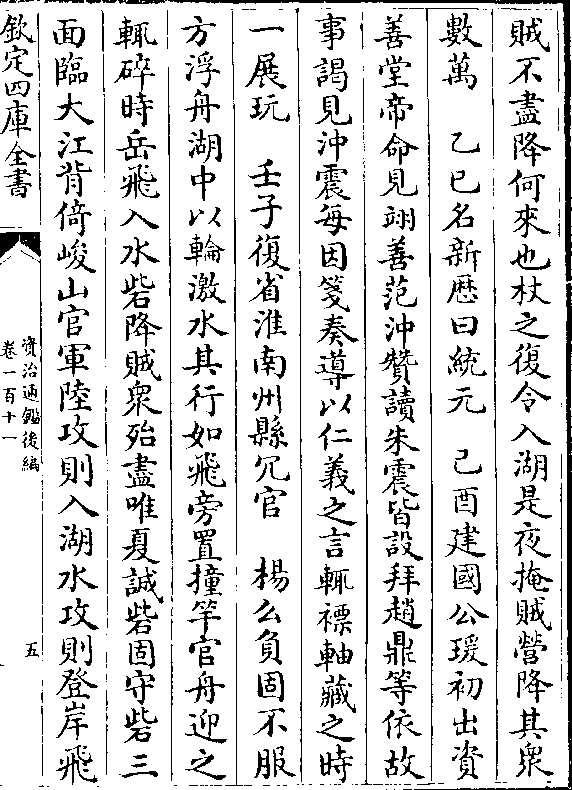 賊不盡降何來也杖之復令入湖是夜掩賊營降其衆
數萬　乙巳名新厯曰統元　己酉建國公瑗初出資
善堂帝命見翊善范沖贊讀朱震皆設拜趙鼎等依故
事謁見沖震每因箋奏導以仁義之言輒褾軸藏之時
一展玩　壬子復省淮南州縣冗官　楊么負固不服
方浮舟湖中以輪激水其行如飛旁置撞竿官舟迎之
輒碎時岳飛入水砦降賊衆殆盡唯夏誠砦固守砦三
面臨大江背倚峻山官軍陸攻則入湖水攻則登岸飛
欽定四庫全書
資治通鑑後編
卷一百十一
五